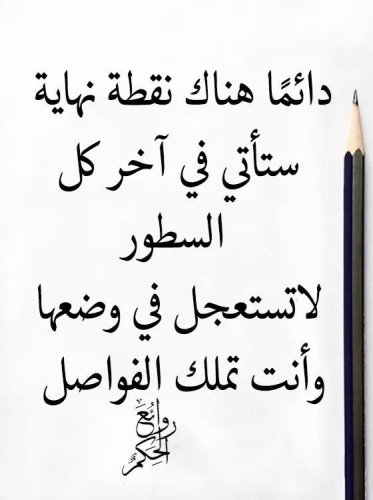 دائمًا هناك نقطة نهاية
ستأتي في آخر كل
السطور
لاتستعجل في وضعها
وأنت تملك الفواصل
روائع
الحكم